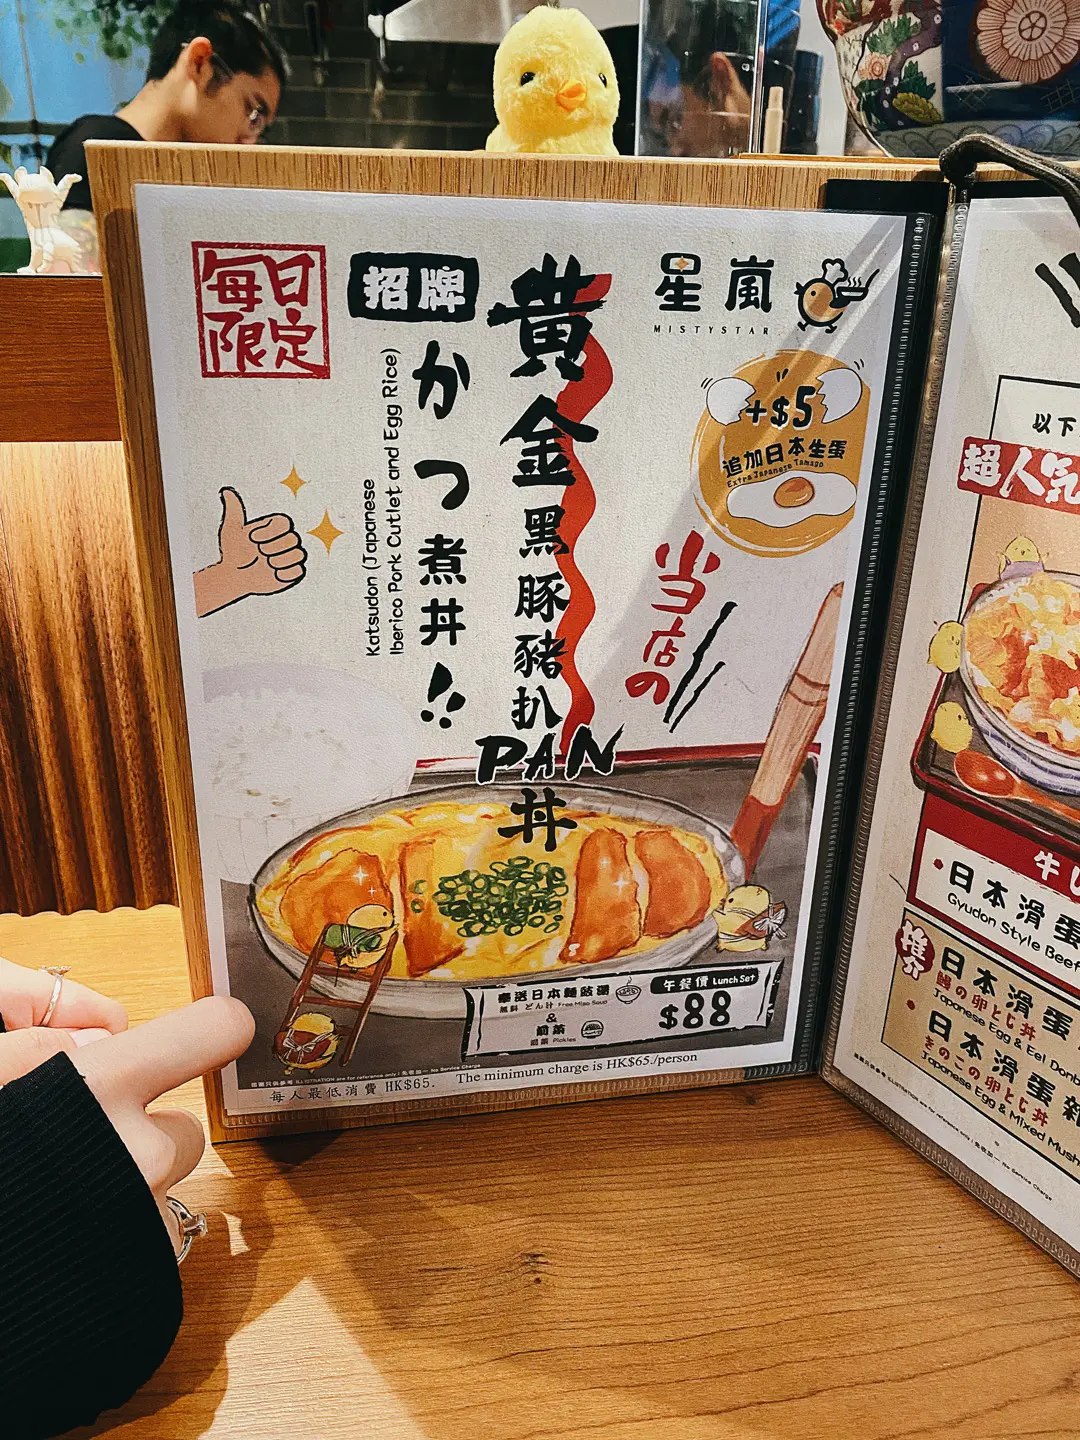 每日
限定
招牌
かつ煮丼!!
Katsudon (Japanese
Iberico Pork Cutlet and Egg Rice)
黄金黑豚豬扒PAN丼
星嵐
MISTYSTAR
+$5
追加日本生蛋
Extra Japanese Tamago
当店の
奉送日本麵豉湯
無料 どん汁 Free Miso Soup
&
前菜
Pickles
午餐價 Lunch Set
$88
插圖只供參考 ILLUSTRATION are for reference only | 免收加一 No Service Charge
每人最低消費 HK$65. The minimum charge is HK$65./person
以下
超人気
牛し
日本滑蛋
Gyudon Style Beef
推介
日本滑蛋
鰻の卵とじ丼
Japanese Egg & Eel Donb
日本滑蛋雜
きのこの卵とじ丼
Japanese Egg & Mixed Mush
插圖只供參考 ILLUSTRATION are for reference only | 免收加一 No Service Charge